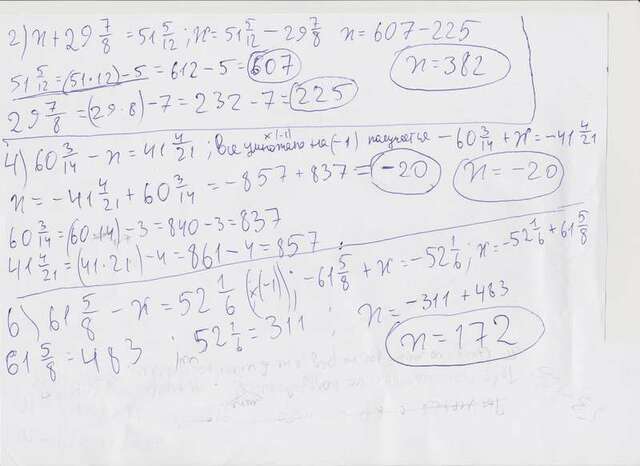 2) x + 29 7/8 = 51 5/12 ; x = 51 5/12 - 29 7/8   x = 607 - 225
51 5/12 = (51·12) - 5 = 612 - 5 = 607   x = 382
29 7/8 = (29·8) - 7 = 232 - 7 = 225
4) 60 3/14 - x = 41 4/21 ; Все умножаю на (-1) получается - 60 3/14 + x = -41 4/21
x(-1)
x = -41 4/21 + 60 3/14 = -857 + 837 = -20   x = -20
60 3/14 = (60·14) - 3 = 840 - 3 = 837
41 4/21 = (41·21) - 4 = 861 - 4 = 857 ;
6) 61 5/8 - x = 52 1/6 (x(-1)) ; -61 5/8 + x = -52 1/6 ; x = -52 1/6 + 61 5/8
61 5/8 = 483 ; 52 1/6 = 311 ; x = -311 + 483
x = 172